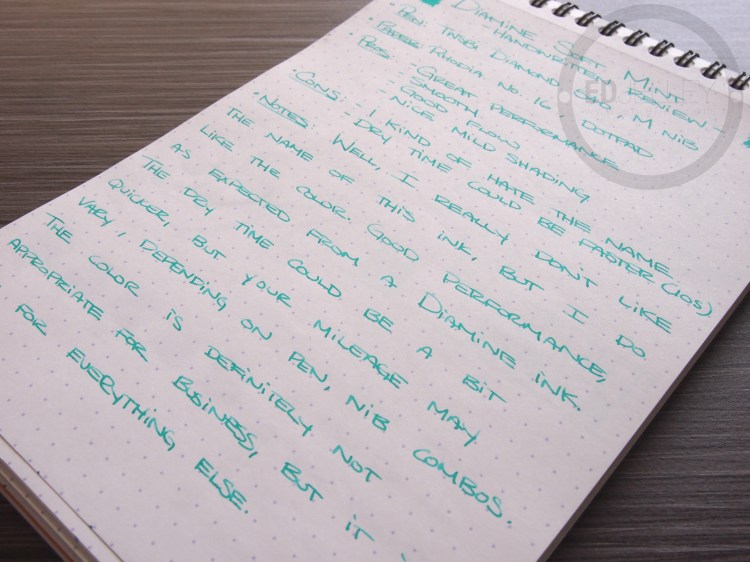 DIAMINE MINT
- HANDWRITTEN REVIEW -
• PEN: TWSBI DIAMOND, M NIB
• PAPER: RHODIA No. 16 DOTPAD
• PROS: - GREAT PERFORMANCE
- SMOOTH
- GOOD FLOW
- NICE MILD SHADING
• CONS: - I KIND OF HATE THE NAME
- DRY TIME COULD BE FASTER (10s)
• NOTES: WELL, I REALLY DON'T LIKE
THE NAME OF THIS INK, BUT I DO
LIKE THE COLOR. GOOD PERFORMANCE,
AS EXPECTED FROM A DIAMINE INK.
THE DRY TIME COULD BE A BIT
QUICKER, BUT YOUR MILEAGE MAY
VARY, DEPENDING ON PEN, NIB COMBOS.
THE COLOR IS DEFINITELY NOT
APPROPRIATE FOR BUSINESS, BUT IT
FOR EVERYTHING ELSE.
ED